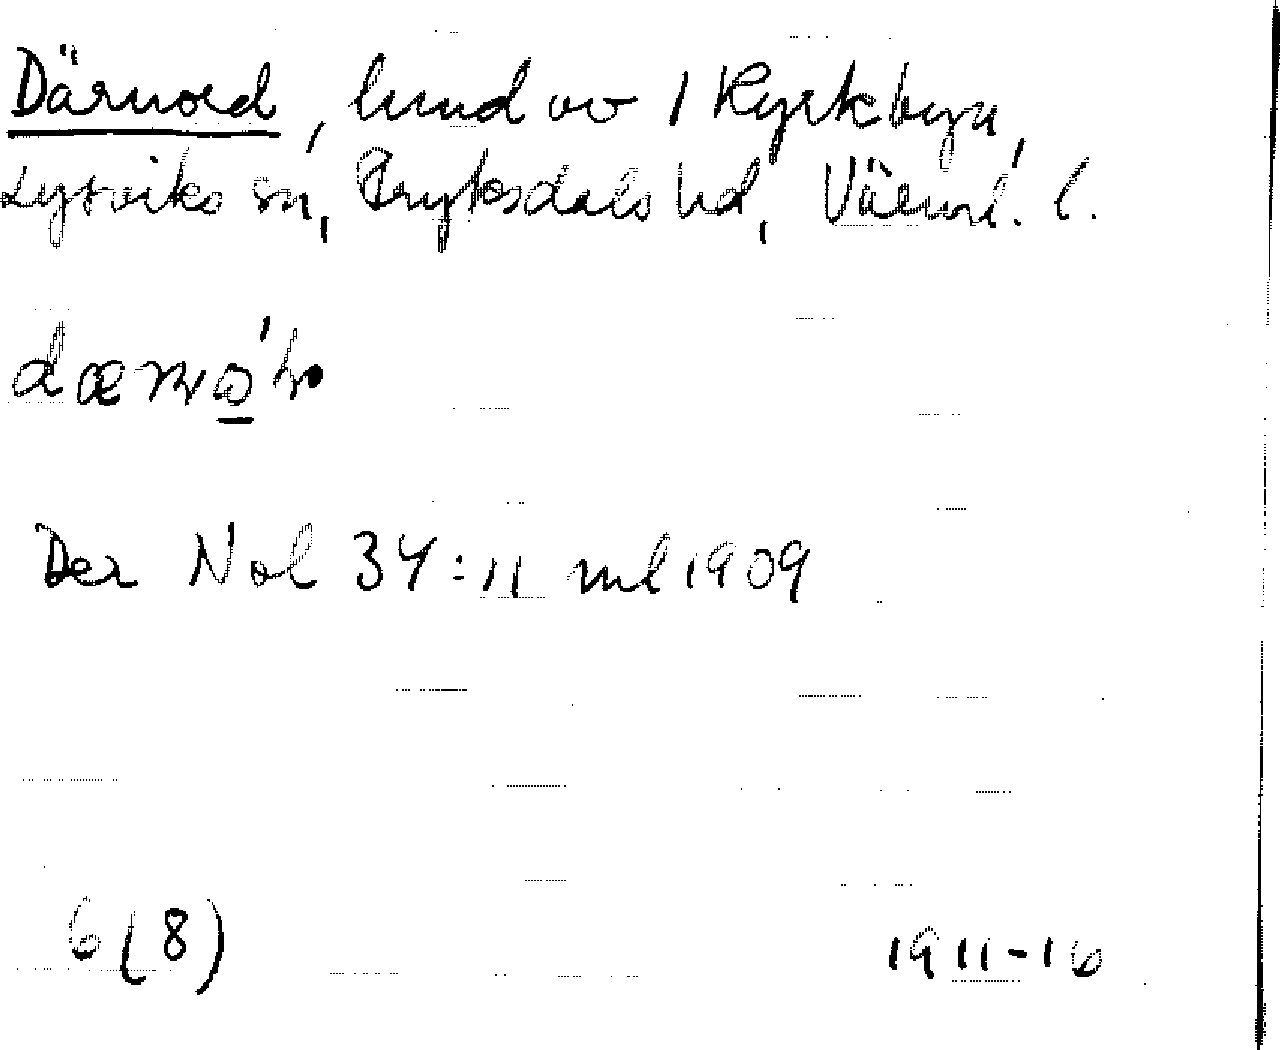 Därnord, hmd av 1 Kyrkbyn,
Lysviks sn, Fryksdals hd, Värml. l.
Der Nol 34:11 ml 1909
6(8) 1911-16